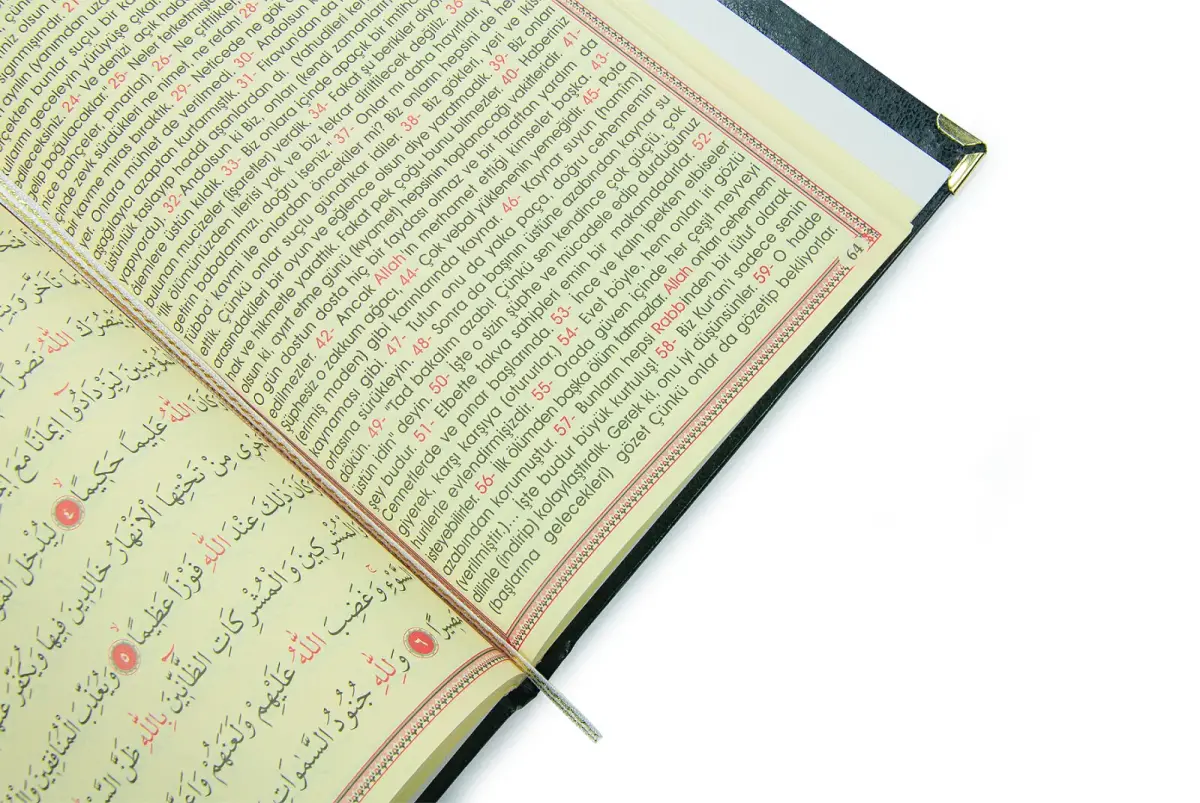 sığınmışımdır. 21-
gerçekten bunlar suçlu bir
geceleyin yürüyüşe
edileceksiniz. 24- Ve denizi açık
boğulacaklar." 25- Neler terketmişler
nice bahçeler, pınarlar). 26- Ne çiftlikler,
içinde zevk sürdükleri ne nimet, ne refah! 28-
miras bıraktık. 29- Neticede ne gök
Onlara mühlet de verilmedi. 30- Andolsun
aşağılayıcı azaptan kurtarmıştık. 31- Firavun'dan
üstünlük taslayıp haddi aşanlardan dı. (Yahudileri
apıyorduk). 32- Andolsun ki biz, onları (kendi zamanların
emlere üstün kıldık. 33- Biz onlara içinde apaçık bir
bulunan mucizeler (işaretler) verdik. 34- Fakat şu berikiler
ilk ölümümüzden ilerisi yok ve biz tekrar diriltilecek değiliz. 36-
getirin babalarımızı, doğru iseniz." 37- Onlar mı daha hayırlıdır
tübba' kavmi ile onlardan öncekiler mi? Biz onların hepsini
ettik. Çünkü onlar suçlu günahkar idiler. 38- Biz gökleri, yeri ve
arasındakileri bir oyun ve eğlence olsun diye yaratmadık. 39- Biz onları
hak ve hikmetle yarattık. Fakat pek çoğu bunu bilmezler. 40- Haberiniz
olsun ki, ayırt etme günü (kıyamet) hepsinin toplanacağı vakitleridir. 41-
O gün dostun dosta hiç bir faydası olmaz ve bir taraftan yardım da
edilmezler. 42- Ancak Allah'ın merhamet ettiği kimseler başka. 43-
Şüphesiz o zakkum ağacı, 44- Çok vebal yüklenenin yemeğidir. 45- Pota
(erimiş maden) gibi karınlarında kaynar. 46- Kaynar suyun
kaynaması gibi. 47- Tutun onu da yaka paça, doğru cehennemin
ortasına sürükleyin. 48- Sonra da başının üstüne azabından kaynar su
dökün. 49- "Tad bakalım azabı! Çünkü sen kendince çok güçlü, çok
üstün idin" deyin. 50- İşte o sizin şüphe ve mücadele edip durduğunuz
şey budur. 51- Elbette takva sahipleri emin bir makamdadırlar. 52-
Cennetlerde ve pınar başlarında. 53- İnce ve kalın ipekten elbiseler
giyerek, karşı karşıya (otururlar.) 54- Evet böyle, hem onları iri gözlü
hurilerle evlendirmişizdir. 55- Orada güven içinde her çeşit meyveyi
isteyebilirler. 56- İlk ölümden başka ölüm tatmazlar. Allah onları cehennem
azabından korumuştur. 57- Bunların hepsi Rabbinden bir lütuf olarak
(verilmiştir)... İşte budur büyük kurtuluş! 58- Biz Kur'an'ı sadece senin
dilinle (indirip) kolaylaştırdık. Gerek ki, onu iyi düşünsünler. 59- O halde
(başlarına gelecekleri) gözet Çünkü onlar da gözetip bekliyorlar.
64
اللّٰهُ نَصْرًا
لِيَزْدَادُوا إِيمَانًا مَعَ
اللّٰهُ عَلِيمًا حَكِيمًا ٤ لِيُدْخِلَ
مِنْ تَحْتِهَا الْأَنْهَارُ خَالِدِينَ فِيهَا وَيُكَفِّرَ
ذٰلِكَ عِنْدَ اللّٰهِ فَوْزًا عَظِيمًا ٥ وَيُعَذِّبَ الْمُنَافِقِينَ
وَالْمُشْرِكِينَ وَالْمُشْرِكَاتِ الظَّانِّينَ بِاللّٰهِ ظَنَّ
السَّوْءِ وَغَضِبَ اللّٰهُ عَلَيْهِمْ وَلَعَنَهُمْ وَأَعَدَّ
٦ وَلِلّٰهِ جُنُودُ السَّمٰوَاتِ